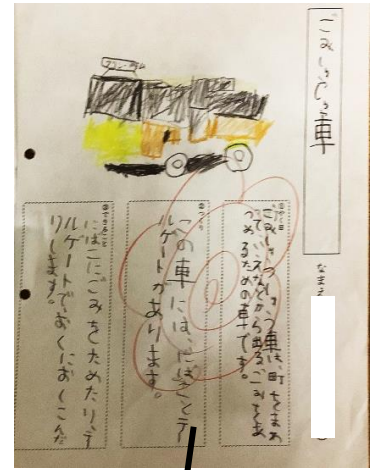 ごみしゅうしゅう車
なまえ
ごみしゅうしゅう車は、町をまわ
って、いえなどから出るごみをあ
つめるための車です。
つくり
この車には、にばことテー
ルゲートのあります。
できること
にばこにごみをためたり、テー
ルゲートでおくにおしこんだ
りします。